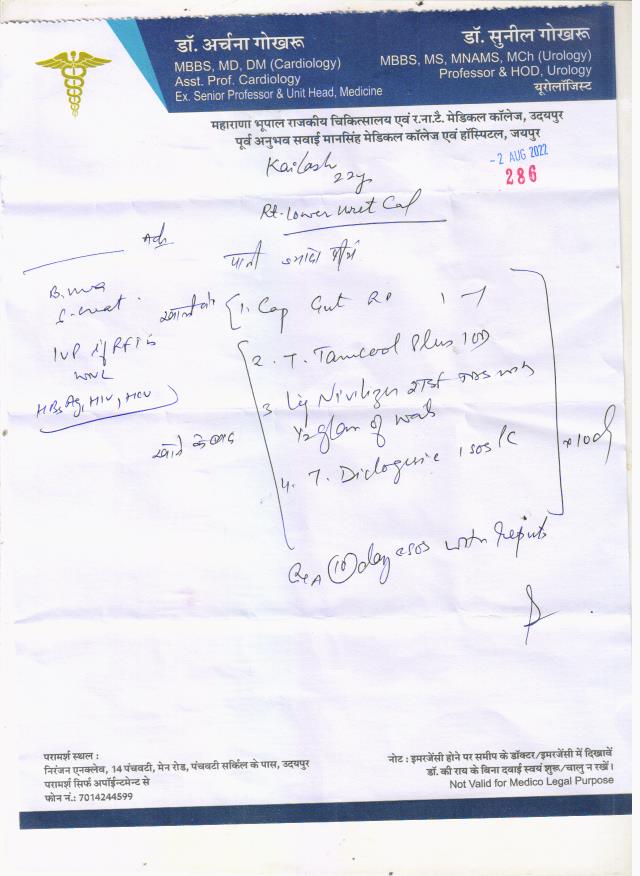 डॉ. अर्चना गोखरू
MBBS, MD, DM (Cardiology)
Asst. Prof. Cardiology
Ex. Senior Professor & Unit Head, Medicine
डॉ. सुनील गोखरू
MBBS, MS, MNAMS, MCh (Urology)
Professor & HOD, Urology
यूरोलॉजिस्ट
महाराणा भूपाल राजकीय चिकित्सालय एवं र.ना.टै. मेडिकल कॉलेज, उदयपुर
पूर्व अनुभव सवाई मानसिंह मेडिकल कॉलेज एवं हॉस्पिटल, जयपुर
- 2 AUG 2022
286
Kailash
22y
Rt. Lower Uret Cal
Adv
पानी ज्यादा पीयें
B. urea
S. creat.
IVP if RFT is
WNL
HBsAg, HIV, HCV
1. Cap
2. T. Tamcool Plus 1OD
3 Liq
1/2 glass of water
खाने के बाद
4. T. 1 SOS
x 10d
10 day SOS with reports
परामर्श स्थल :
निरंजन एनक्लेव, 14 पंचवटी, मेन रोड, पंचवटी सर्किल के पास, उदयपुर
परामर्श सिर्फ अपॉईन्टमेन्ट से
फोन नं.: 7014244599
नोट : इमरजेंसी होने पर समीप के डॉक्टर/इमरजेंसी में दिखावें
डॉ. की राय के बिना दवाई स्वयं शुरू/चालु न रखें।
Not Valid for Medico Legal Purpose